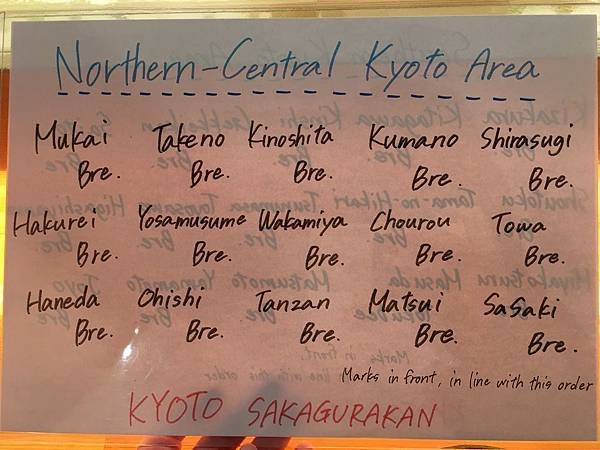 Northern-Central Kyoto Area
Mukai Bre. Takeno Bre. Kinoshita Bre. Kumano Bre. Shirasugi Bre.
Hakurei Bre. Yosamusume Bre. Wakamiya Bre. Chourou Bre. Towa Bre.
Haneda Bre. Ohishi Bre. Tanzan Bre. Matsui Bre. Sasaki Bre.
Marks in front, in line with this order
KYOTO SAKAGURAKAN